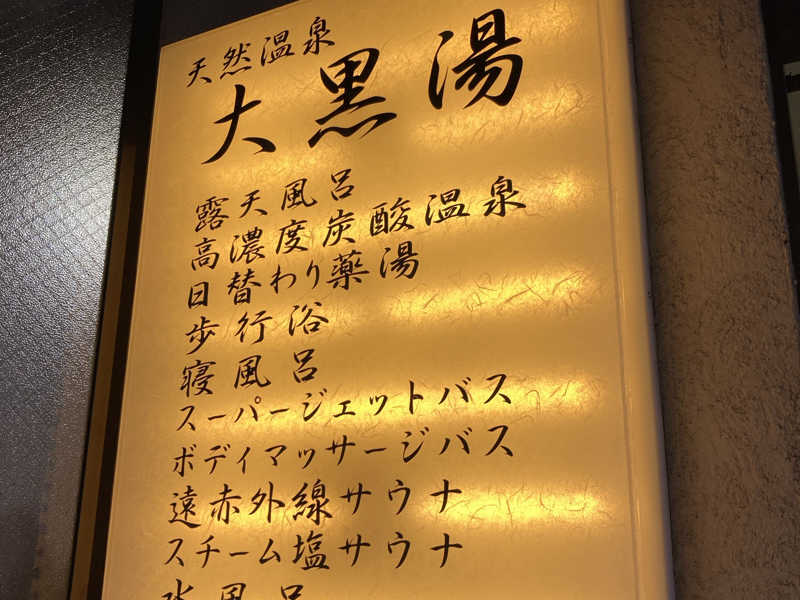 天然温泉
大黒湯
露天風呂
高濃度炭酸温泉
日替わり薬湯
歩行浴
寝風呂
スーパージェットバス
ボディマッサージバス
遠赤外線サウナ
スチーム塩サウナ
水風呂